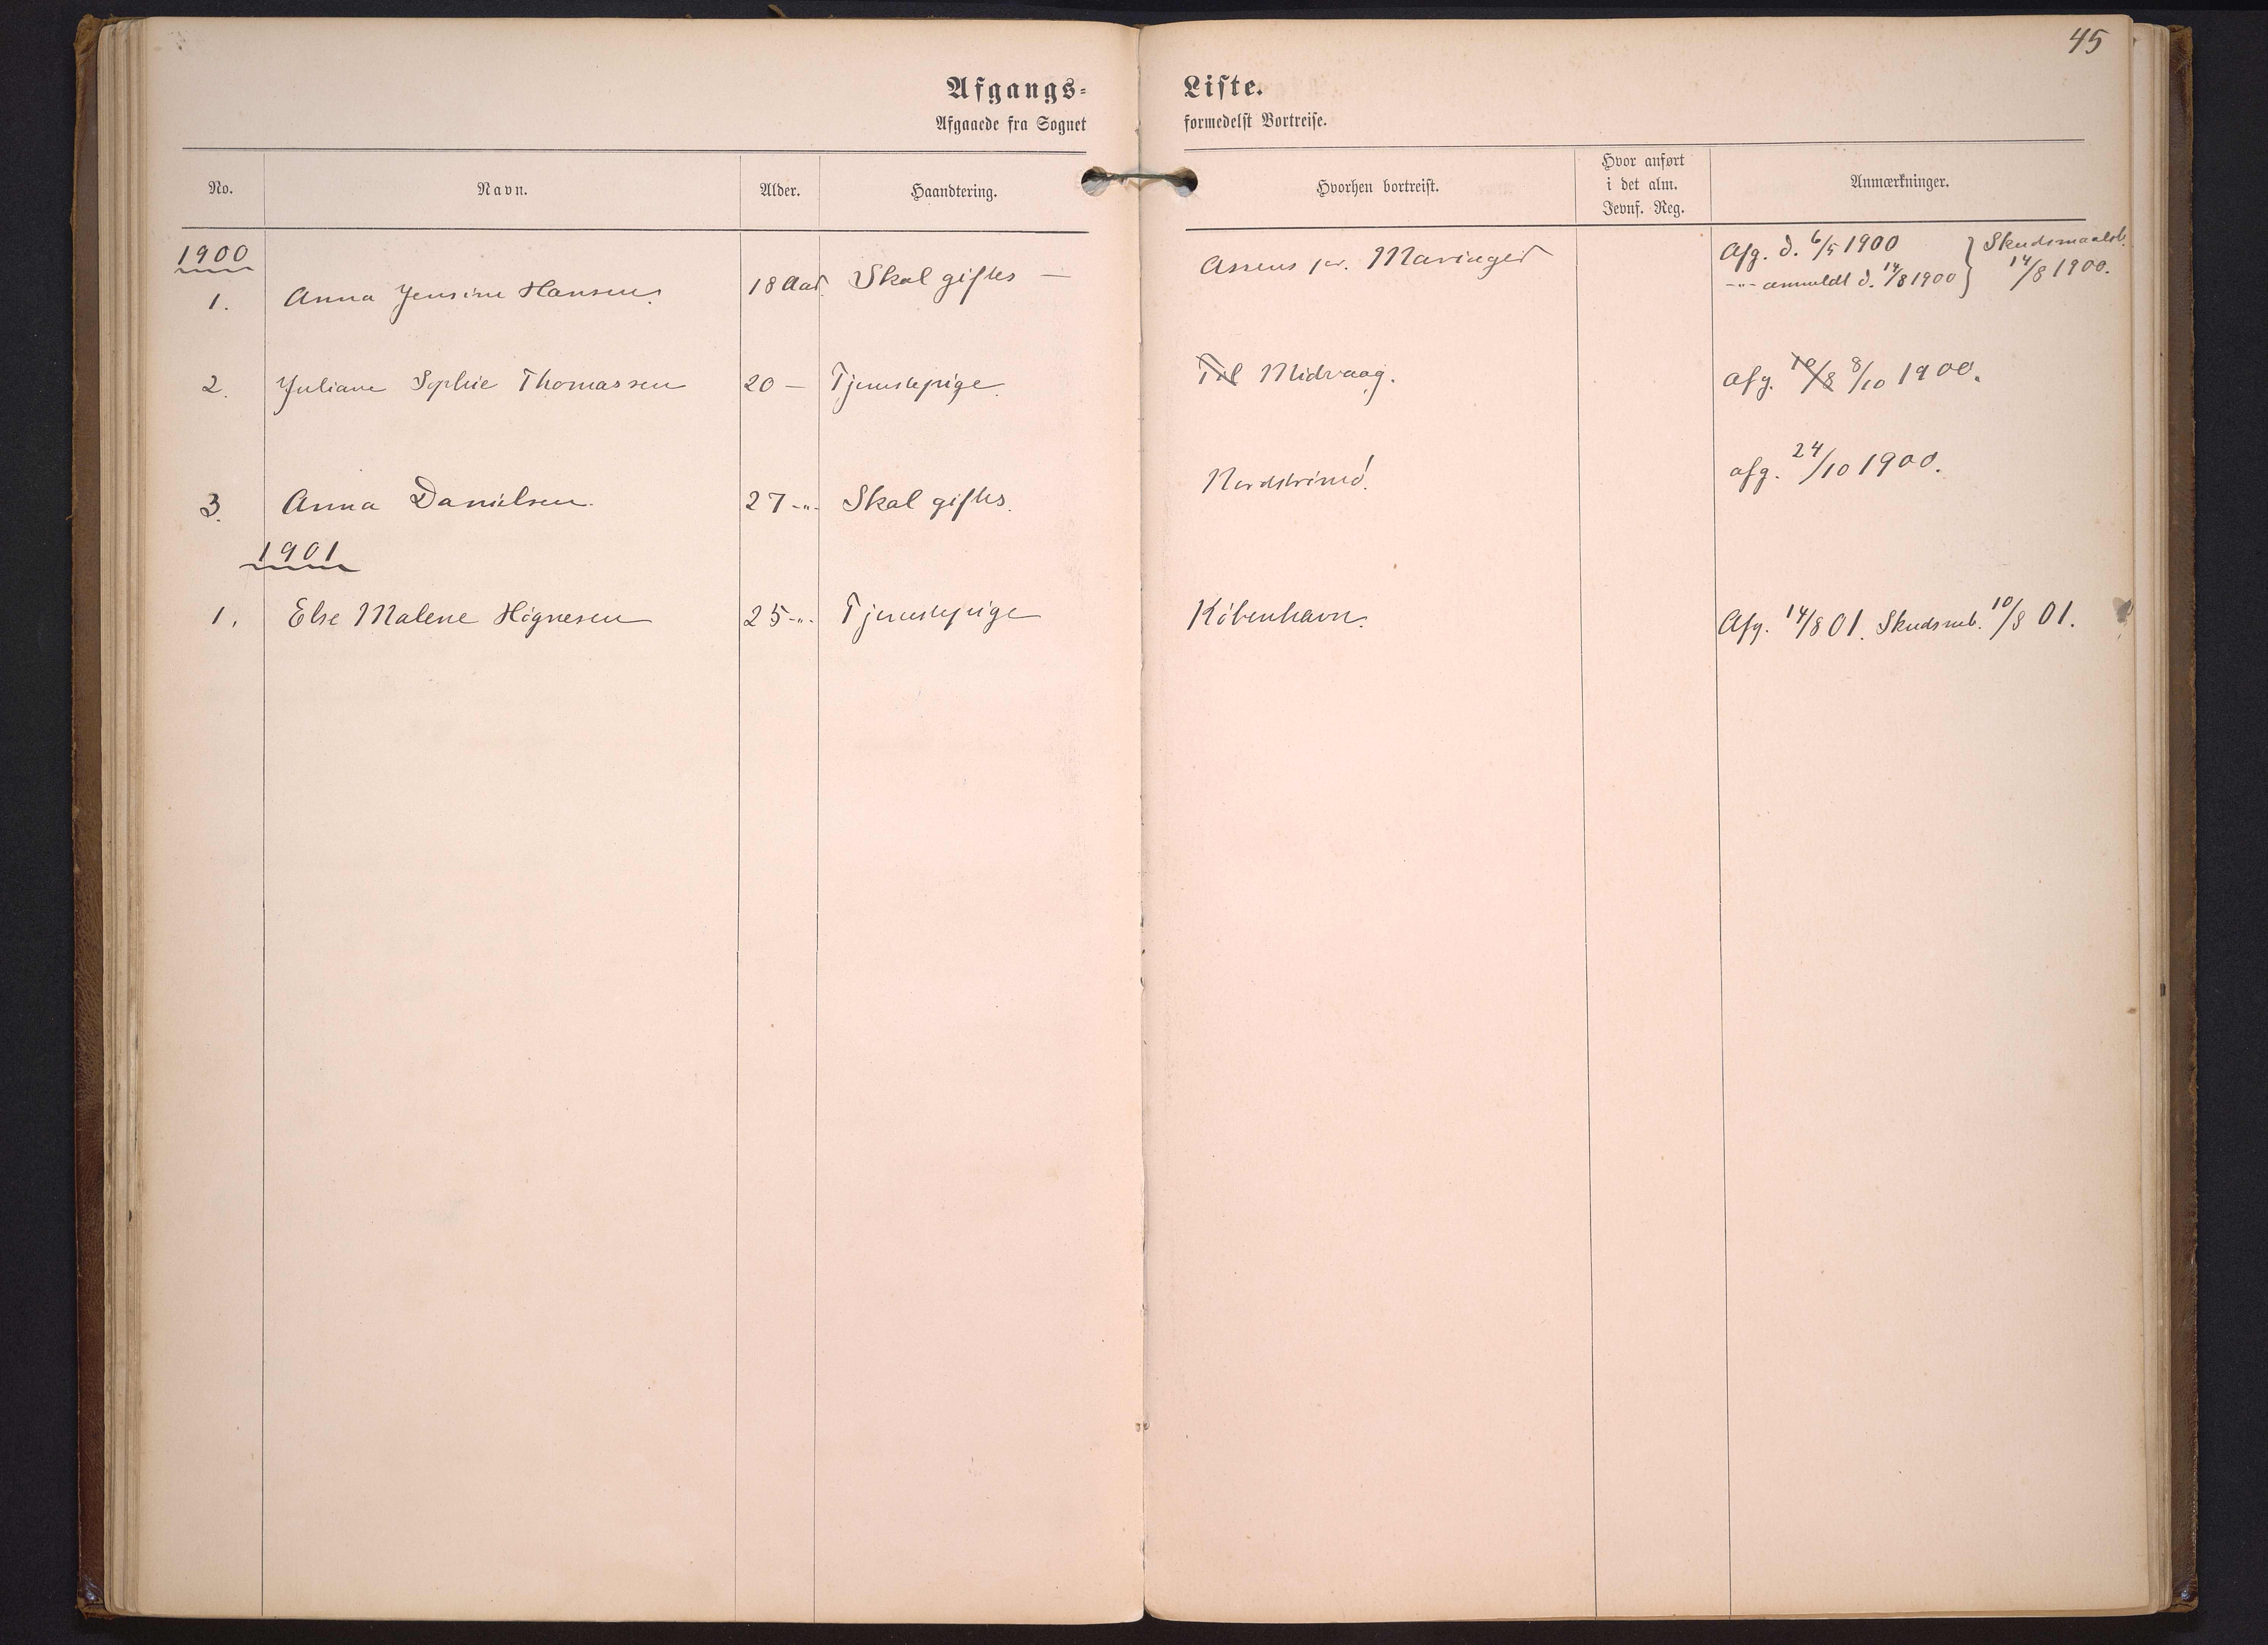 45
Afgangs-Liste.
Afgaaede fra Sognet formedelst Bortreise.
No. Navn. Alder. Haandtering. Hvorhen bortreist. Hvor anført i det alm. Jevnf. Reg. Anmærkninger.
1900
1. Anna Jensine Hansen. 18 Aar. Skal giftes — Assens pr. Mariager Afg. d. 6/5 1900 } Skudsmaalsb.
-"- anmeldt d. 14/8 1900 } 14/8 1900.
2. Juliane Sophie Thomassen 20 — Tjenestepige. Til Midvaag. afg. 10/8 8/10 1900.
3. Anna Danielsen. 27 -"- Skal giftes. Nordstrømø. afg. 24/10 1900.
1901
1. Else Malene Høgnesen 25 -"- Tjenestepige København. Afg. 14/8 01. Skudsmb. 10/8 01.